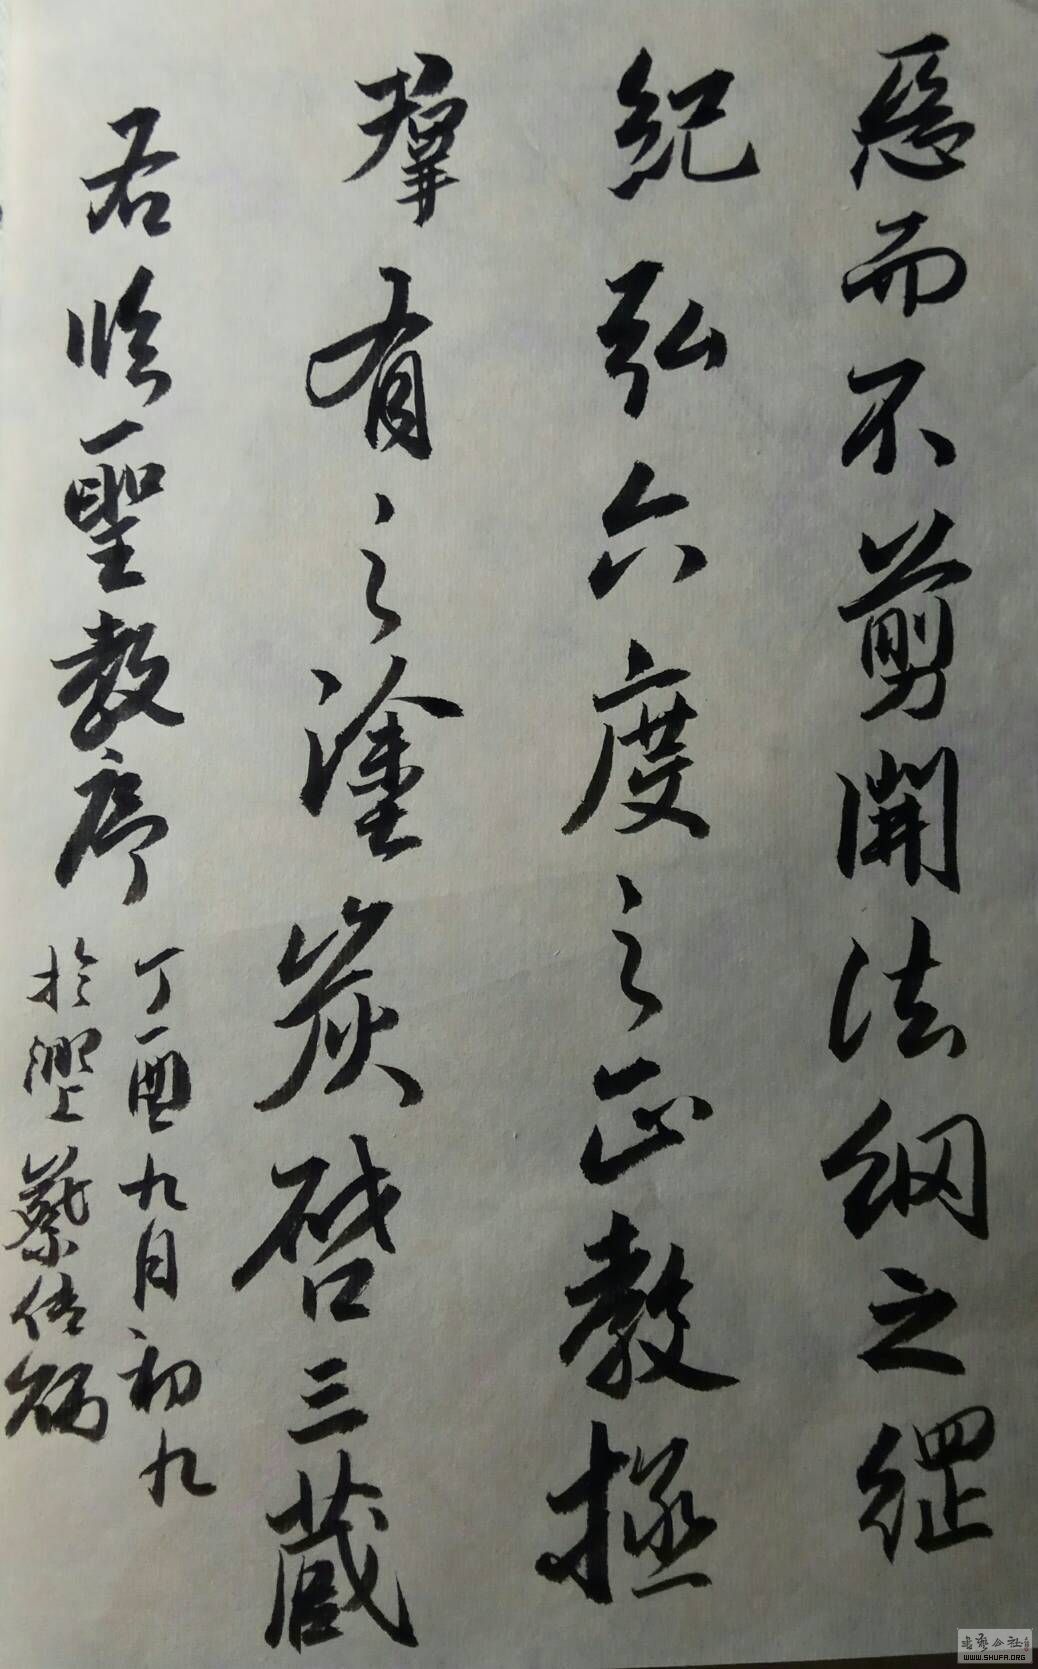 惡而不剪開法網之綱
紀弘六度之正教拯
羣有之塗炭啓三藏
右臨聖教序
丁酉九月初九
於上蔡
書藝公社
WWW.SHUFA.ORG